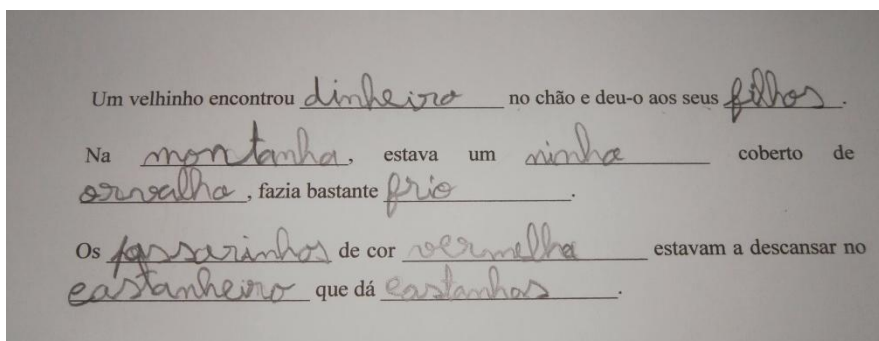 Um velhinho encontrou dinheiro no chão e deu-o aos seus filhos.
Na montanha, estava um ninho coberto de
orvalho, fazia bastante frio.
Os passarinhos de cor vermelha estavam a descansar no
castanheiro que dá castanhas.